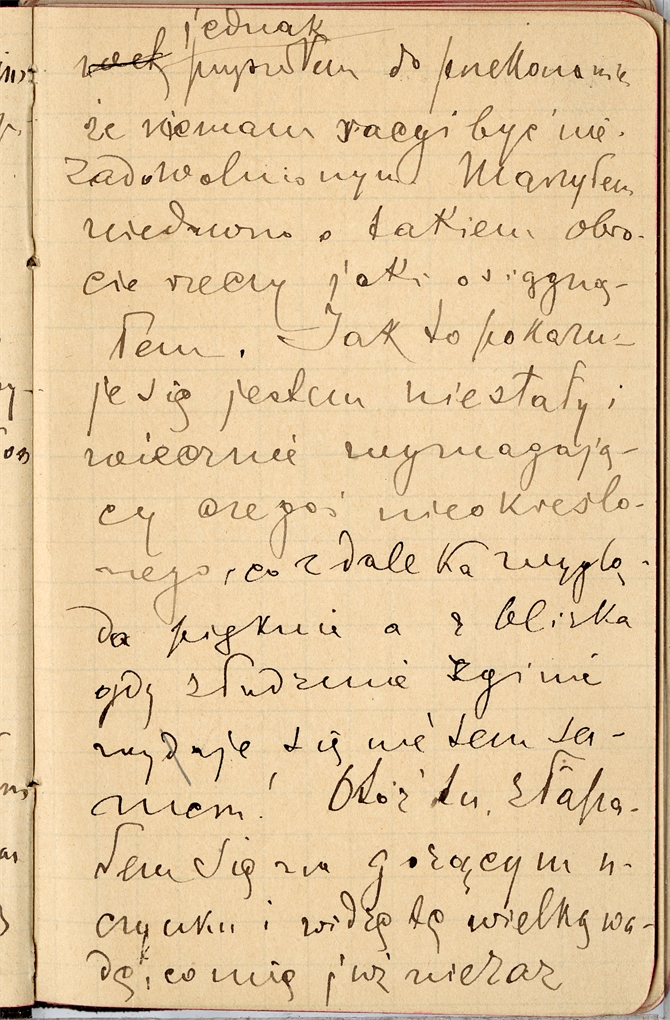 jednak
przyszedłem do przekonanie
że niemam racyi być nie-
zadowolnionym. Marzyłem
niedawno o takiem obro-
cie rzeczy jaki osiągną-
łem. Jak to pokazu-
je się jestem niestały i
wiecznie wymagają-
cy czegoś nieokreślo-
nego, co z daleka wyglą-
da pięknie a z bliska
gdy złudzenie zginie
wydaje się nie tem sa-
mem! Otóż tu złapa-
łem się na gorącym u-
czynku i widzę tę wielką wa-
dę, co mię już nieraz